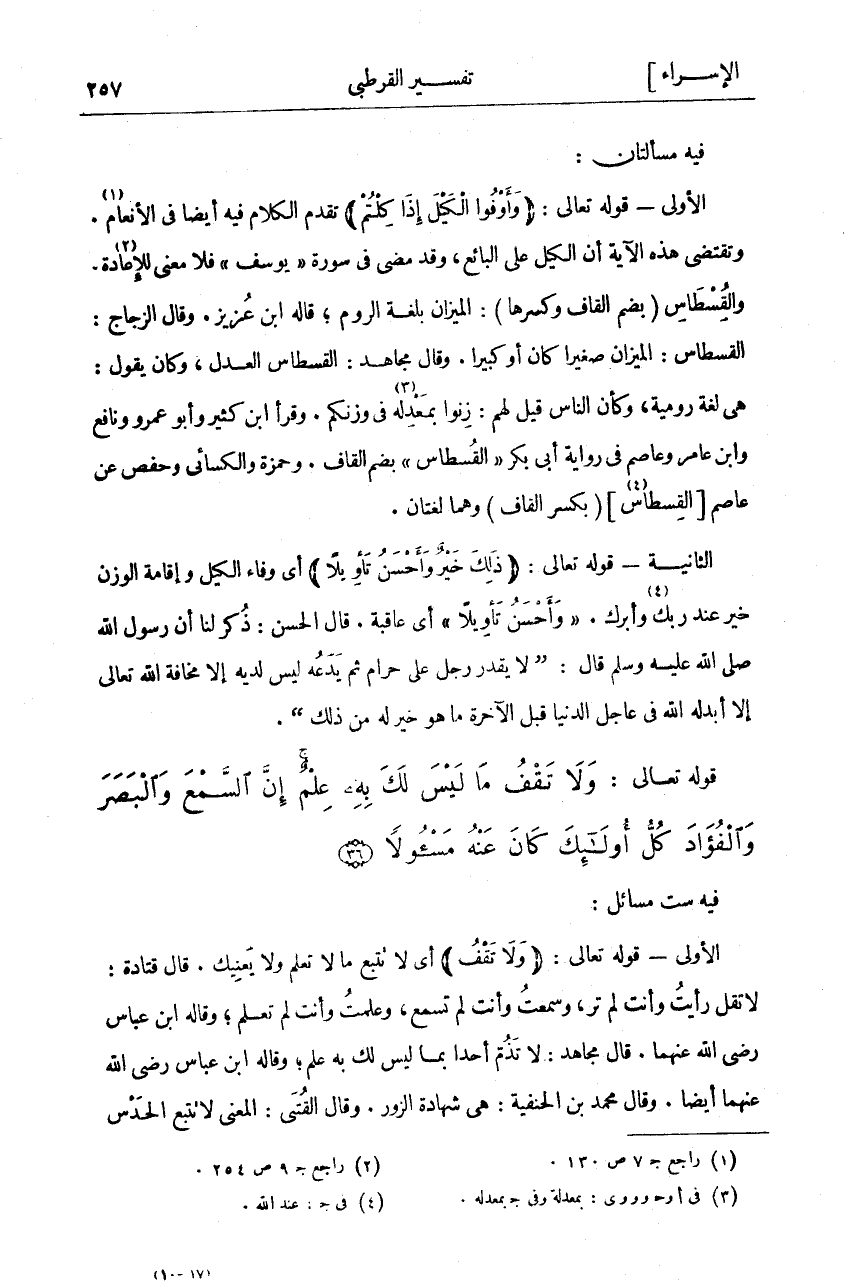 الإسراء ] تفسير القرطبى ٢٥٧
فيه مسألتان :
الأولى — قوله تعالى : ﴿ وَأَوْفُوا الْكَيْلَ إِذَا كِلْتُمْ ﴾ تقدم الكلام فيه أيضا فى الأنعام (١) .
وتقتضى هذه الآية أن الكيل على البائع، وقد مضى فى سورة « يوسف » فلا معنى للإعادة (٢).
والقُِسْطَاسِ ( بضم القاف وكسرها ) : الميزان بلغة الروم ؛ قاله ابن عُزيز . وقال الزجاج :
القسطاس : الميزان صغيرا كان أو كبيرا . وقال مجاهد : القسطاس العدل ، وكان يقول :
هى لغة رومية، وكأن الناس قيل لهم : زِنوا بمَعْدِله (٣) فى وزنكم . وقرأ ابن كثير وأبو عمرو ونافع
وابن عامر وعاصم فى رواية أبى بكر « القُسطاس » بضم القاف . وحمزة والكسائى وحفص عن
عاصم [ القِسطاس (٤) ] ( بكسر القاف ) وهما لغتان .
الثانية — قوله تعالى : ﴿ ذَلِكَ خَيْرٌ وَأَحْسَنُ تَأْوِيلًا ﴾ أى وفاء الكيل وإقامة الوزن
خير عند ربك (٤) وأبرك . « وَأَحْسَنُ تَأْوِيلًا » أى عاقبة . قال الحسن : ذُكر لنا أن رسول الله
صلى الله عليه وسلم قال : ” لا يقدر رجل على حرام ثم يَدَعُه ليس لديه إلا مخافة الله تعالى
إلا أبدله الله فى عاجل الدنيا قبل الآخرة ما هو خير له من ذلك “ .
قوله تعالى : وَلَا تَقْفُ مَا لَيْسَ لَكَ بِهِۦ عِلْمٌ ۚ إِنَّ ٱلسَّمْعَ وَٱلْبَصَرَ
وَٱلْفُؤَادَ كُلُّ أُولَـٰٓئِكَ كَانَ عَنْهُ مَسْـُٔولًا ٣٦
فيه ست مسائل :
الأولى — قوله تعالى : ﴿ وَلَا تَقْفُ ﴾ أى لا تتبع ما لا تعلم ولا يَعنِيك . قال قتادة :
لا تقل رأيتُ وأنت لم تر، وسمعتُ وأنت لم تسمع، وعلمتُ وأنت لم تعلم ؛ وقاله ابن عباس
رضى الله عنهما . قال مجاهد : لا تَذُمّ أحدا بما ليس لك به علم؛ وقاله ابن عباس رضى الله
عنهما أيضا . وقال محمد بن الحنفية : هى شهادة الزور . وقال القُتَبى : المعنى لا تتبع الحَدْس
(١) راجع جـ ٧ ص ١٣٠ . (٢) راجع جـ ٩ ص ٢٥٤ .
(٣) فى أ و حـ و و و ى : بمعدلة وفى جـ بمعدله . (٤) فى جـ : عند الله .
(١٧-١٠)